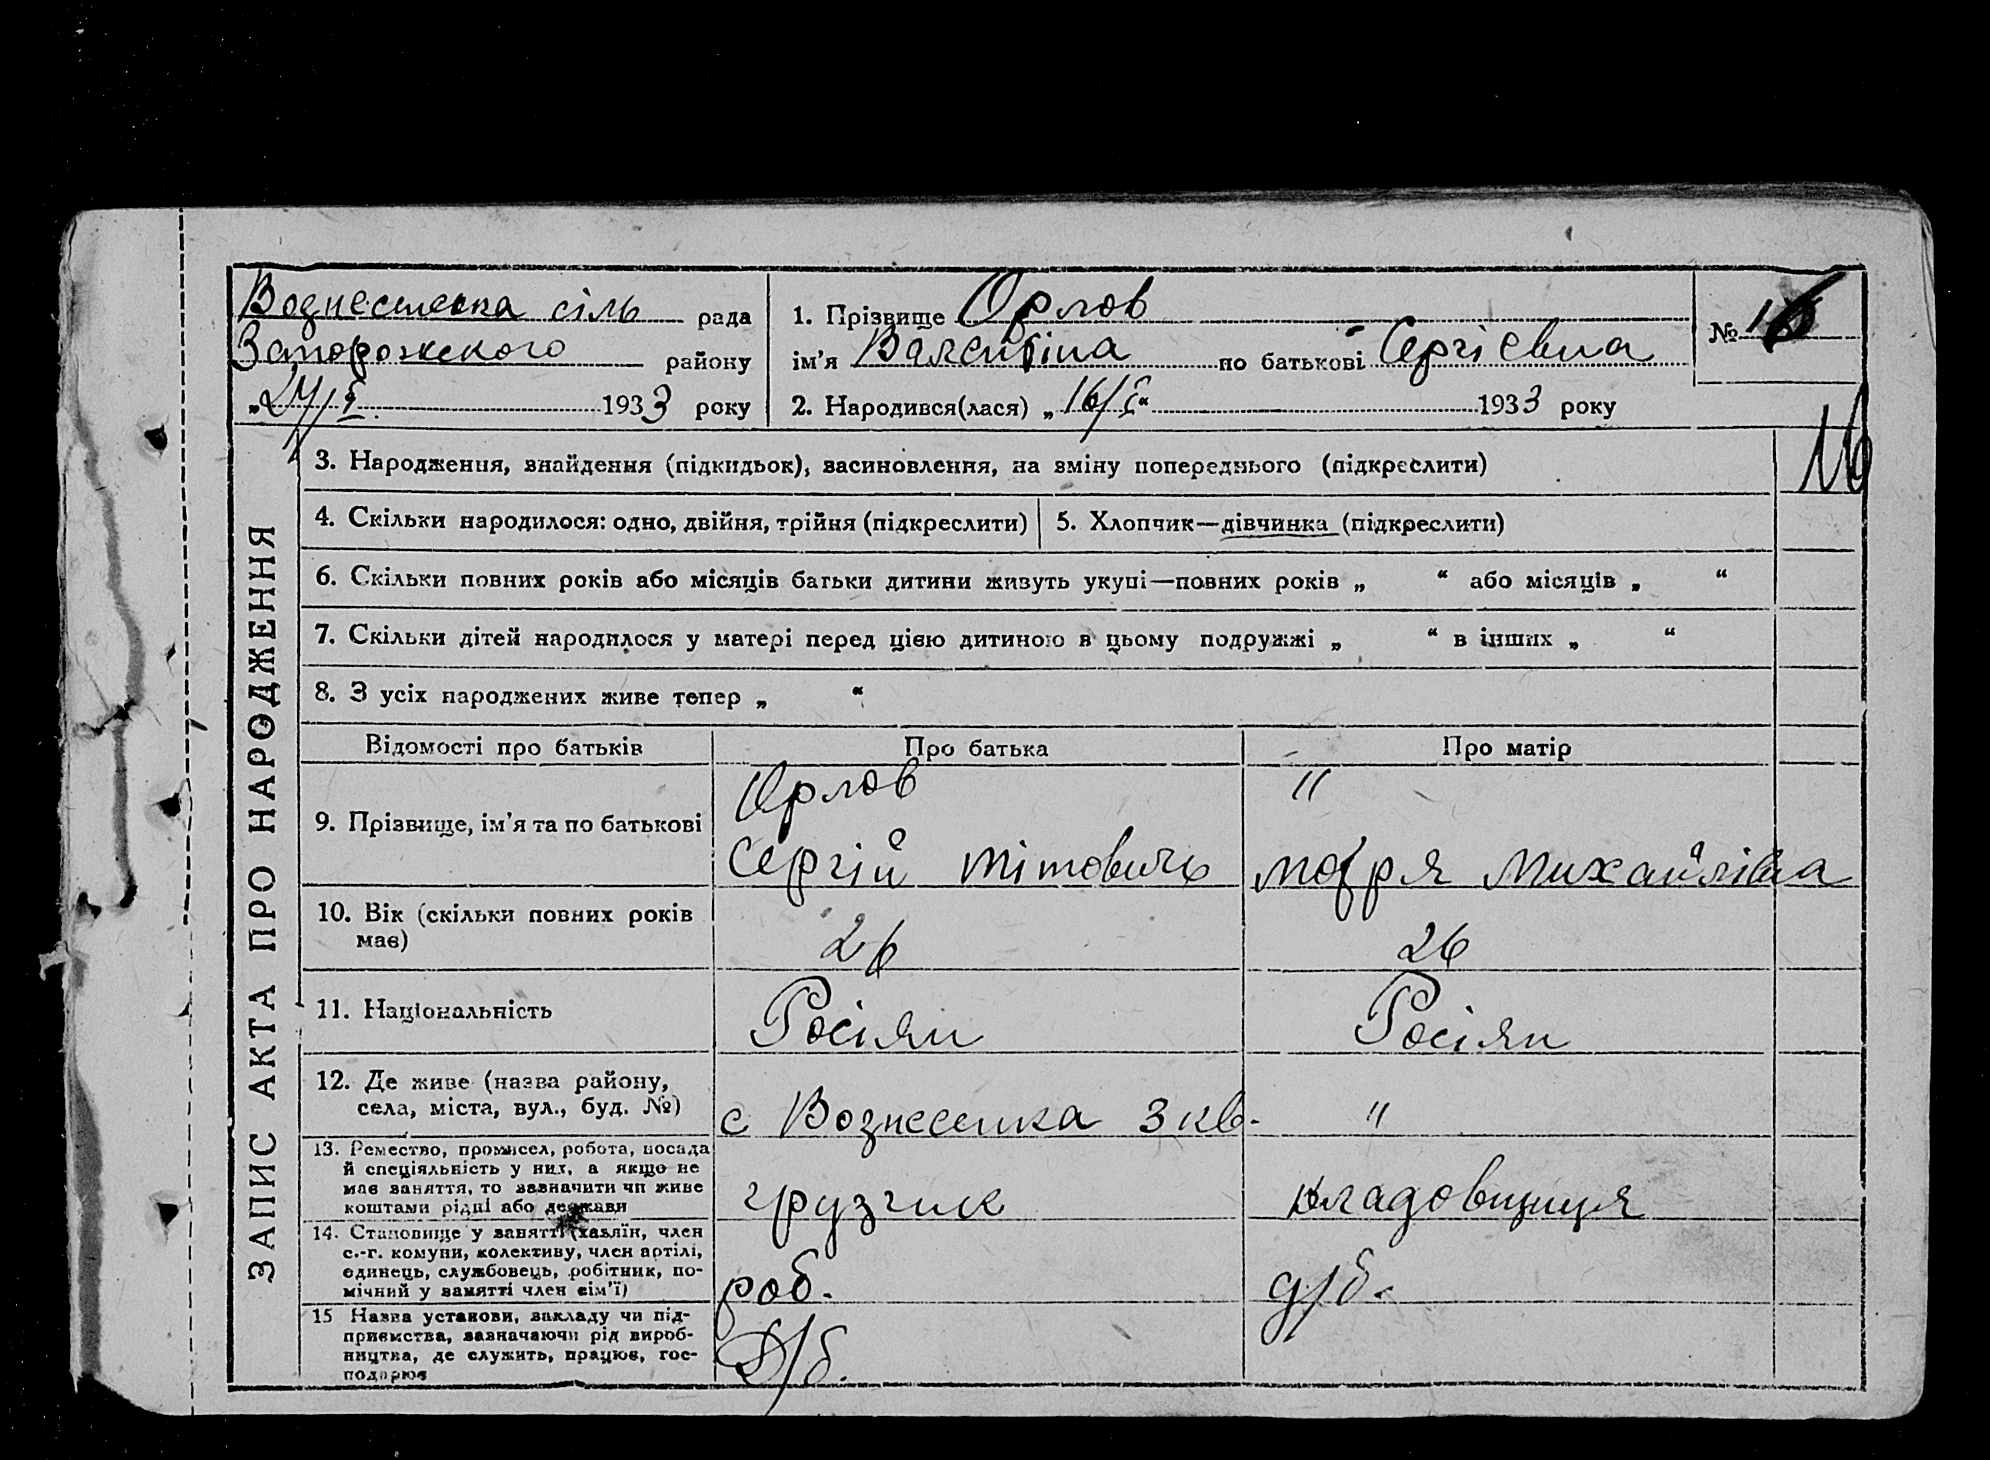 Вознесенка сіль рада
Запорожского району
„24/I. 1933 року
1. Прізвище Орлов
ім'я Валентіна по батькові Сергієвна
2. Народився(лася) „16/I“ 1933 року
№ 16
16
ЗАПИС АКТА ПРО НАРОДЖЕННЯ
3. Народження, знайдення (підкидьок), засиновлення, на зміну попереднього (підкреслити)
4. Скільки народилося: одно, двійня, трійня (підкреслити) 5. Хлопчик—дівчинка (підкреслити)
6. Скільки повних років або місяців батьки дитини живуть укупі—повних років „ “ або місяців „ “
7. Скільки дітей народилося у матері перед цією дитиною в цьому подружжі „ “ в інших „ “
8. З усіх народжених живе тепер „ “
Відомості про батьків Про батька Про матір
9. Прізвище, ім'я та по батькові
Орлов "
Сергій Тітовичь Марія Михайлівна
10. Вік (скільки повних років
має)
26 26
11. Національність Росіян Росіян
12. Де живе (назва району,
села, міста, вул., буд. №)
с Вознесенка 3 кв. "
13. Ремество, промисел, робота, посада
й спеціяльність у них, а якщо не
має заняття, то зазначити чи живе
коштами рідні або держави
грузчик кладовщиця
14. Становище у занятті (хазяїн, член
с.-г. комуни, колективу, член артілі,
єдинець, службовець, робітник, по-
мічний у занятті член сім'ї)
роб. д/б.
15 Назва установи, закладу чи під-
приємства, зазначаючи рід вироб-
ництва, де служить, працює, гос-
подарює
Д/б.